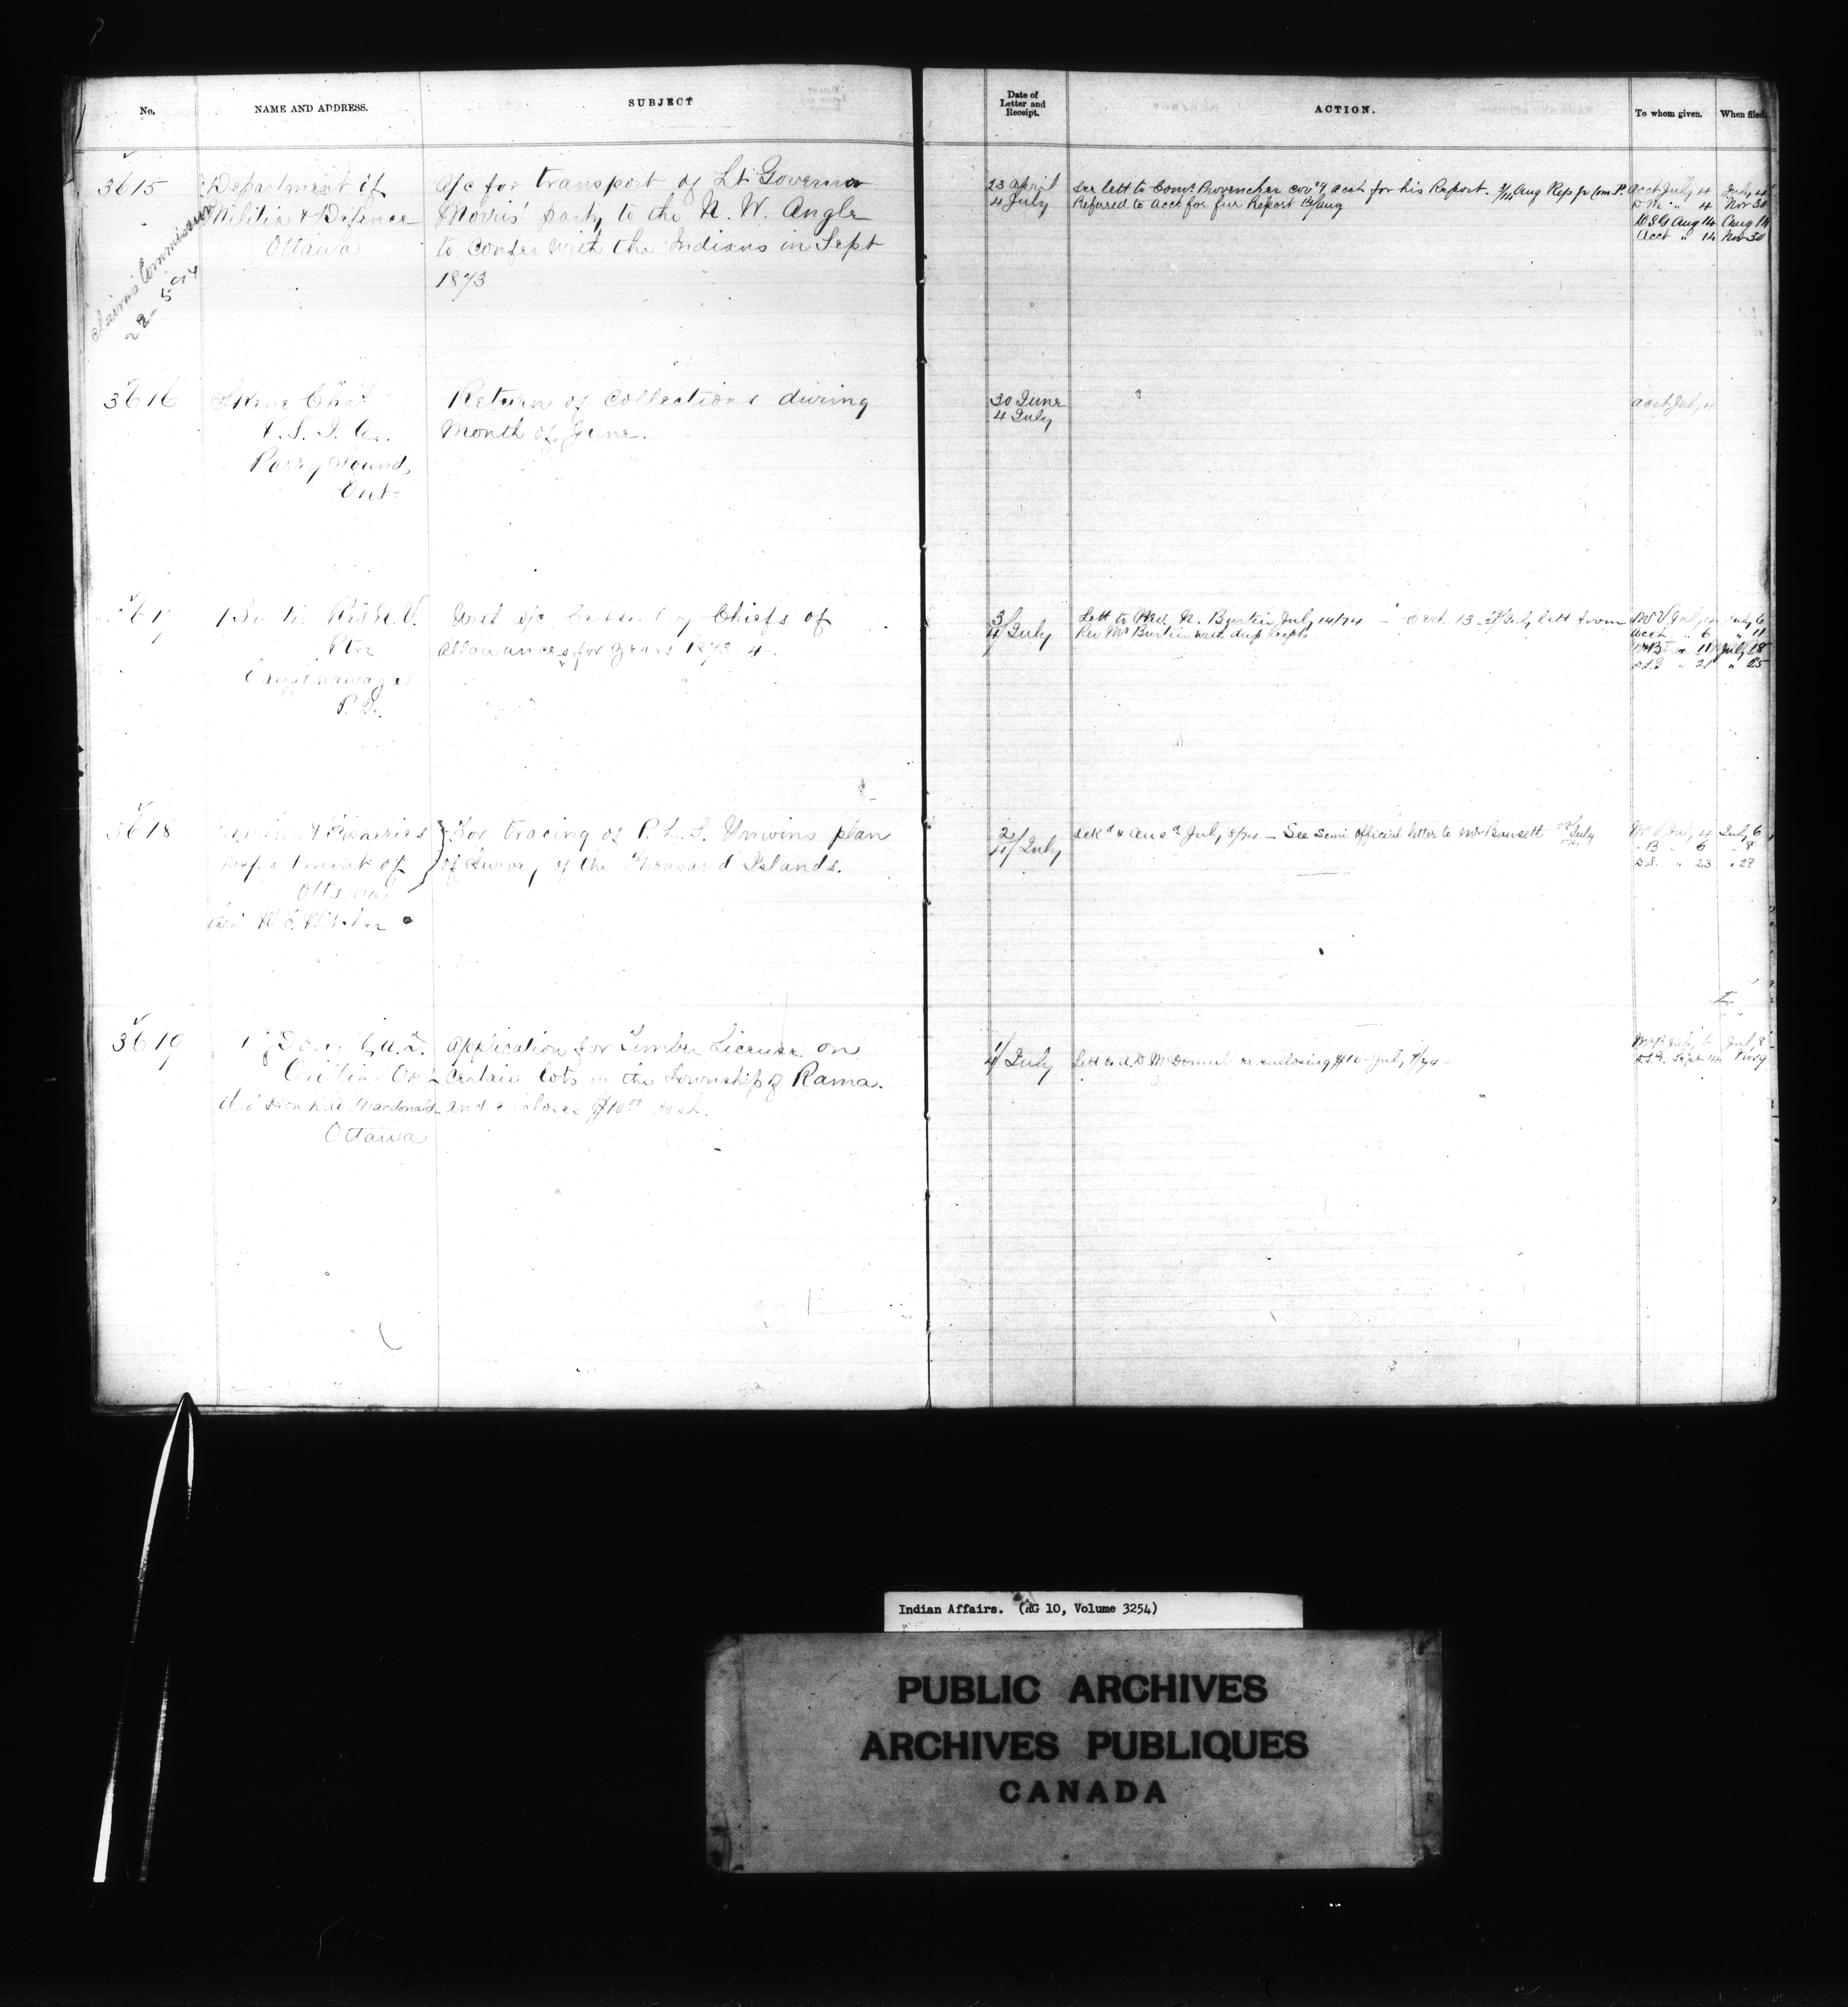 No.
NAME AND ADDRESS.
SUBJECT
Date of
Letter and
Receipt.
ACTION.
To whom given.
When filed.
3615
Department of
Militia & Defence
Ottawa
Claims Commission
a/c for transport of Lt Governor
Morris' party to the N. W. Angle
to confer with the Indians in Sept
1873
23 April
4 July
See lett to Comr Provencher covg acct for his Report. 3/14 Aug Rep fr Com P.
Refered to acct for fur Report 12/Aug
Acct July 4 July 4
D M " 4 Nov 30
D S G Aug 14 Aug 14
Acct " 14 Nov 30
3616
Skene Chas
V. S. I. A.
Parry Sound
Ont
Return of Collections during
Month of June.
30 June
4 July
Acct July 4
3617
Burtin Revd N. V.
Ptre
Caughnawaga
P. Q.
Chiefs of
Allowances for years 1873-4
3/4 July
Lett to Rev. N. Burtin July 14/74 lett from
Rev Mr Burtin with dup recpts
July 4 July 6
Acct " 6 " 11
" 11 July 18
" 21 " 25
3618
Marine & Fisheries
Department of
Ottawa
For tracing of P. L. S. Unwins plan
of Survey of the Thousand Islands.
2/4 July
Ackd & Ansd July 8/74 — See semi official letter to Mr Bausett July
Mr V July 4 July 6
" B " 6 " 8
D.S. " 23 " 28
3619
Orillia Ont
Hon D. A. Macdonald
Ottawa
Application for Timber License on
certain lots in the Township of Rama.
and encloses $10.00 cash.
1/4 July
Lett to A. D. McDonell re enclosing $10 - July 7/74 -
July 6 July 8
D.S.G. Sept 14 Nov 9
Indian Affairs. (RG 10, Volume 3254)
PUBLIC ARCHIVES
ARCHIVES PUBLIQUES
CANADA